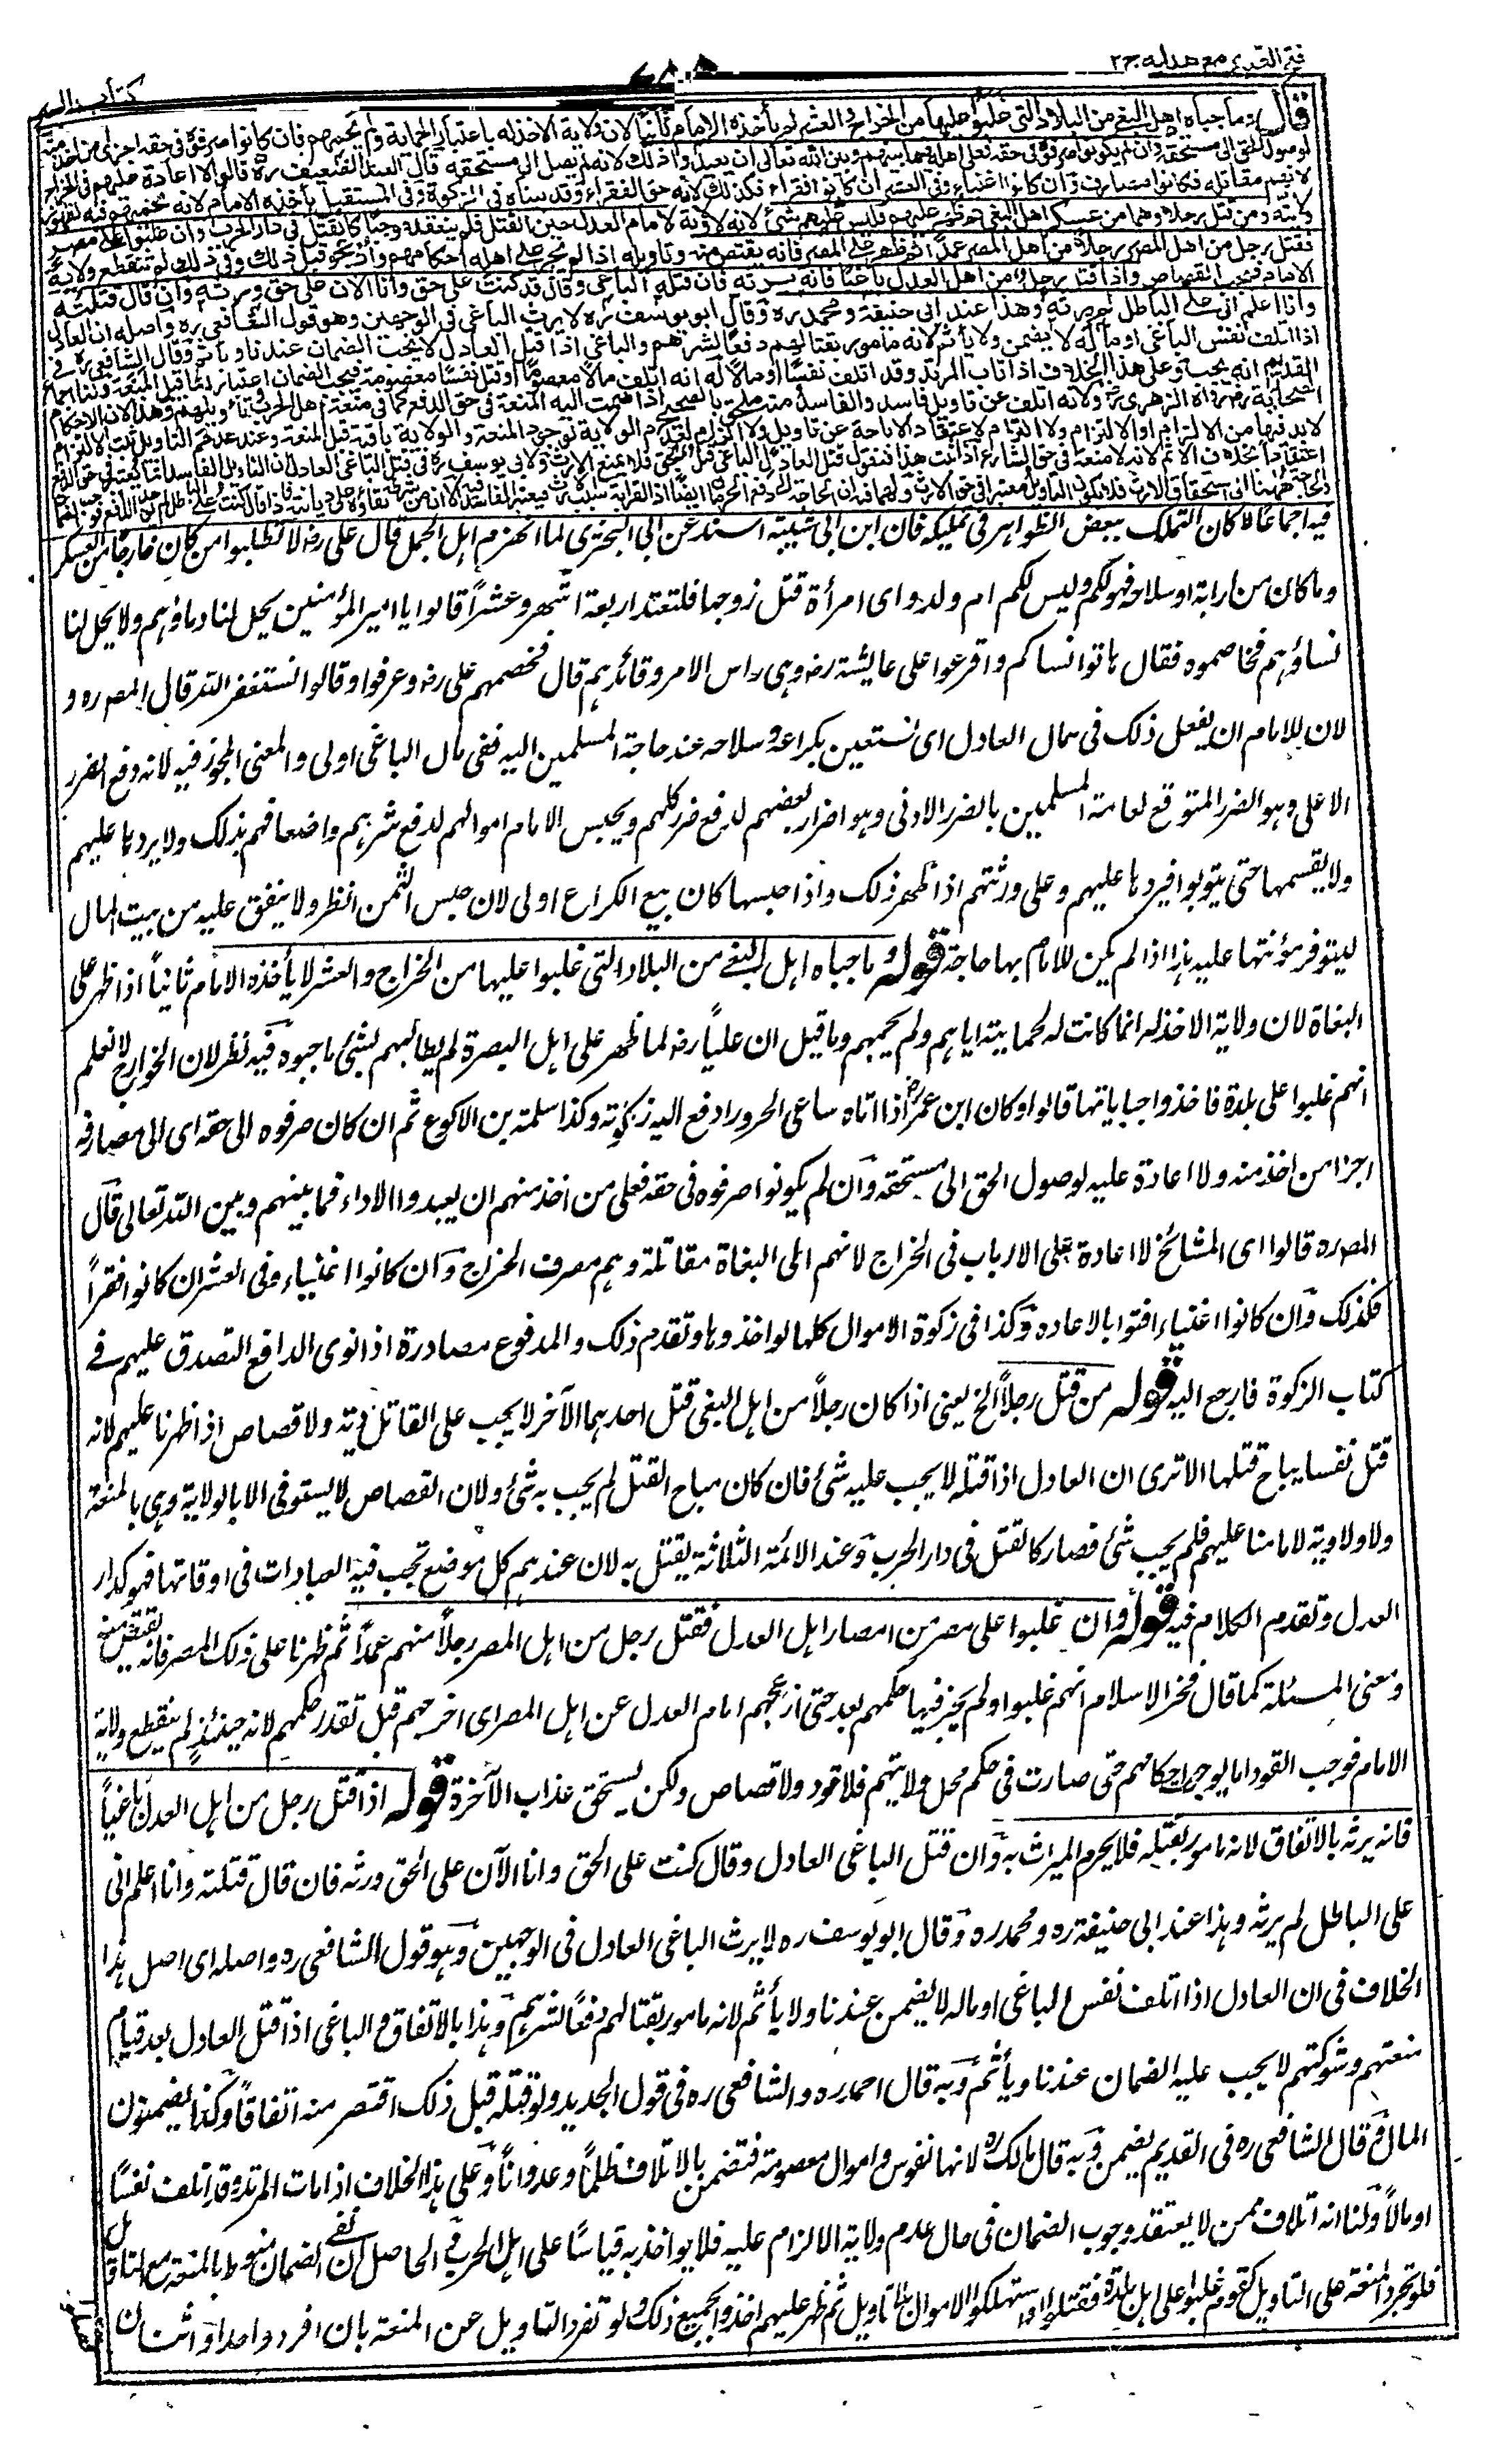 فتح القدير مع هدايه ج٢
كتاب السير
قال وما جباه اهل البغي من البلاد التي غلبوا عليها من الخراج والعشر لم يأخذه الامام ثانيا لان ولاية الاخذ له باعتبار الحماية ولم يحمهم فان كانوا صرفوه في حقه اجزى من اخذ منه
لوصول الحق الى مستحقه وان لم يكونوا صرفوه في حقه فعلى اهله فيما بينهم وبين الله تعالى ان يعيدوا ذلك لانه لم يصل الى مستحقه قال العبد الضعيف ره قالوا لا اعادة عليهم في الخراج
لانهم مقاتلة فكانوا مصارف وان كانوا اغنياء وفي العشر ان كانوا فقراء فكذلك لانه حق الفقراء وقد بيناه في الزكوة وفي المستقبل يأخذه الامام لانه يحميهم فيه لظهور
ولايته ومن قتل رجلا وهما من عسكر اهل البغي ثم ظهر عليهم فليس عليهم شئ لانه لا ولاية لامام العدل حين القتل فلم ينعقد موجبا كالقتل في دار الحرب وان غلبوا على مصر
فقتل رجل من اهل المصر رجلا من اهل المصر عمدا ثم ظهر على المصر فانه يقتص منه وتاويله اذا لم يجر على اهله احكامهم وازعجوا قبل ذلك وفي ذلك لم تنقطع ولاية
الامام فيجب القصاص واذا قتل رجل من اهل العدل باغيا فانه يرثه فان قتله الباغي وقال قد كنت على حق وانا الان على حق ورثه وان قال قتلته
وانا اعلم اني على الباطل لم يرثه وهذا عند ابي حنيفة ومحمد ره وقال ابو يوسف ره لا يرث الباغي في الوجهين وهو قول الشافعي ره واصله ان العادل
اذا اتلف نفس الباغي او ماله لا يضمن ولا يأثم لانه مامور بقتالهم دفعا لشرهم والباغي اذا قتل العادل لا يجب الضمان عندنا ويأثم وقال الشافعي ره في
القديم انه يجب وعلى هذا الخلاف اذا تاب المرتد وقد اتلف نفسا او مالا له انه اتلف مالا معصوما او قتل نفسا معصومة فيجب الضمان اعتبارا بما قبل المنعة ولنا اجماع
الصحابة رواه الزهري ره ولانه اتلف عن تاويل فاسد والفاسد منه ملحق بالصحيح اذا ضمت اليه المنعة في حق الدفع كما في منعة اهل الحرب وتأويلهم وهذا لان الاحكام
لابد فيها من الالزام او الالتزام ولا التزام لاعتقاد الاباحة عن تاويل ولا الزام لعدم الولاية لوجود المنعة والولاية باقية قبل المنعة وعند عدم التاويل ثبت الالتزام
اعتقادا بخلاف الاثم لانه لا منعة في حق الشارع اذا ثبت هذا فنقول قتل العادل الباغي قتل بحق فلا يمنع الارث ولابي يوسف ره في قتل الباغي العادل ان التاويل الفاسد انما يعتبر في حق الدفع
فيه اجماعا لا كان التملك ببعض الظواهر في تمليكه فان ابن ابي شيبة اسند عن ابي البختري لما انهزم اهل الجمل قال علي رض لا تطلبوا من كان خارجا من العسكر
وما كان من دابة او سلاح فهو لكم وليس لكم ام ولد واى امرأة قتل زوجها فلتعتد اربعة اشهر وعشرا قالوا يا امير المؤمنين يحل لنا دماؤهم ولا يحل لنا
نساؤهم فخاصموه فقال هاتوا نساكم واقرعوا على عايشة رض وهي راس الامر وقائدهم قال فخصمهم علي رض وعرفوا وقالوا نستغفر الله قال المص ره و
لان للامام ان يفعل ذلك في مال العادل اى نستعين بكراعه وسلاحه عند حاجة المسلمين اليه ففي مال الباغي اولى والمعنى المجوز فيه لانه دفع الضرر
الاعلى وهو الضرر المتوقع لعامة المسلمين بالضرر الادنى وهو اضرار بعضهم لدفع ضرر كلهم ويحبس الامام اموالهم لدفع شرهم واضعافهم بذلك ولا يردها عليهم
ولا يقسمها حتى يتوبوا فيردها عليهم وعلى ورثتهم اذا ظهر ذلك واذا حبسها كان بيع الكراع اولى لان حبس الثمن انظر ولا ينفق عليه من بيت المال
ليتوفر مؤنتها عليه هذا اذا لم يكن للامام بها حاجة قوله وما جباه اهل البغي من البلاد التي غلبوا عليها من الخراج والعشر لا يأخذه الامام ثانيا اذا ظهر على
البغاة لان ولاية الاخذ له انما كانت له لحمايته اياهم ولم يحمهم وما قيل ان عليا رض لما ظهر على اهل البصرة لم يطالبهم بشئ ما جبوه فيه نظر لان الخوارج لا نعلم
انهم غلبوا على بلدة فاخذوا جباياتها قالوا وكان ابن عمر رض اذا اتاه ساعي الحرورا دفع اليه زكوته وكذا سلمة بن الاكوع ثم ان كان صرفوه الى حقه اى الى مصارفه
اجزا من اخذ منه ولا اعادة عليه لوصول الحق الى مستحقه وان لم يكونوا صرفوه في حقه فعلى من اخذ منهم ان يعيدوا الاداء فيما بينهم وبين الله تعالى قال
المص ره قالوا اى المشائخ لا اعادة على الارباب في الخراج لانهم اى البغاة مقاتلة وهم مصرف الخراج وان كانوا اغنياء وفي العشر ان كانوا فقرا
فكذلك وان كانوا اغنياء افتوا بالاعاده وكذا في زكوة الاموال كلها لو اخذوها وتقدم ذلك والمدفوع مصادرة اذا نوى الدافع التصدق عليهم في
كتاب الزكوة فارجع اليه قوله من قتل رجلا الخ يعني اذا كان رجلا من اهل البغي قتل احدهما الآخر لا يجب على القاتل دية ولا قصاص اذا ظهرنا عليهم لانه
قتل نفسا يباح قتلها الا ترى ان العادل اذا قتله لا يجب عليه شئ فان كان مباح القتل لم يجب به شئ ولان القصاص لا يستوفى الا بالولاية وهي بالمنعة
ولا ولاية لامامنا عليهم فلم يجب شئ فصار كالقتل في دار الحرب وعند الائمة الثلاثة يقتل به لان عندهم كل موضع تجب فيه العبادات في اوقاتها فهو كدار
العدل وتقدم الكلام فيه قوله وان غلبوا على مصر من امصار اهل العدل فقتل رجل من اهل المصر رجلا منهم عمدا ثم ظهرنا على ذلك المصر فانه يقتص منه
ومعنى المسئلة كما قال فخر الاسلام انهم غلبوا ولم يجر فيها حكمهم بعد حتى ازعجهم امام العدل عن اهل المصر اى اخرجهم قبل تقدر حكمهم لانه حينئذ لم ينقطع ولاية
الامام فوجب القود اما لو جرى احكامهم حتى صارت في حكم محل ولايتهم فلا قود ولا قصاص ولكن يستحق عذاب الآخرة قوله اذا قتل رجل من اهل العدل باغيا
فانه يرثه بالاتفاق لانه مامور بقتله فلا يحرم الميراث به وان قتل الباغي العادل وقال كنت على الحق وانا الآن على الحق ورثه فان قال قتلته وانا اعلم اني
على الباطل لم يرثه وهذا عند ابي حنيفة ره ومحمد ره وقال ابو يوسف ره لا يرث الباغي العادل في الوجهين وهو قول الشافعي ره واصله اى اصل هذا
الخلاف في ان العادل اذا اتلف نفس الباغي او ماله لا يضمن عندنا ولا يأثم لانه مامور بقتالهم دفعا لشرهم وهذا بالاتفاق والباغي اذا قتل العادل بعد قيام
منعتهم وشوكتهم لا يجب عليه الضمان عندنا ويأثم وبه قال احمد ره والشافعي ره في قول الجديد ولو قتله قبل ذلك اقتص منه اتفاقا وكذا يضمنون
المال وقال الشافعي ره في القديم يضمن وبه قال مالك ره لانها نفوس واموال معصومة فتضمن بالاتلاف ظلما وعدوانا وعلى هذا الخلاف اذا مات المرتد وقد اتلف نفسا
او مالا ولنا انه اتلاف ممن لا يعتقد وجوب الضمان في حال عدم ولاية الالزام عليه فلا يواخذ به قياسا على اهل الحرب والحاصل ان نفي الضمان منوط بالمنعة مع التاويل
فلو تجرد المنعة على التاويل كقوم غلبوا على اهل بلدة فقتلوا واستهلكوا الاموال بلا تاويل ثم ظهر عليهم اخذوا بجميع ذلك ولو تفرد التاويل عن المنعة بان افرد واحدا واثنان